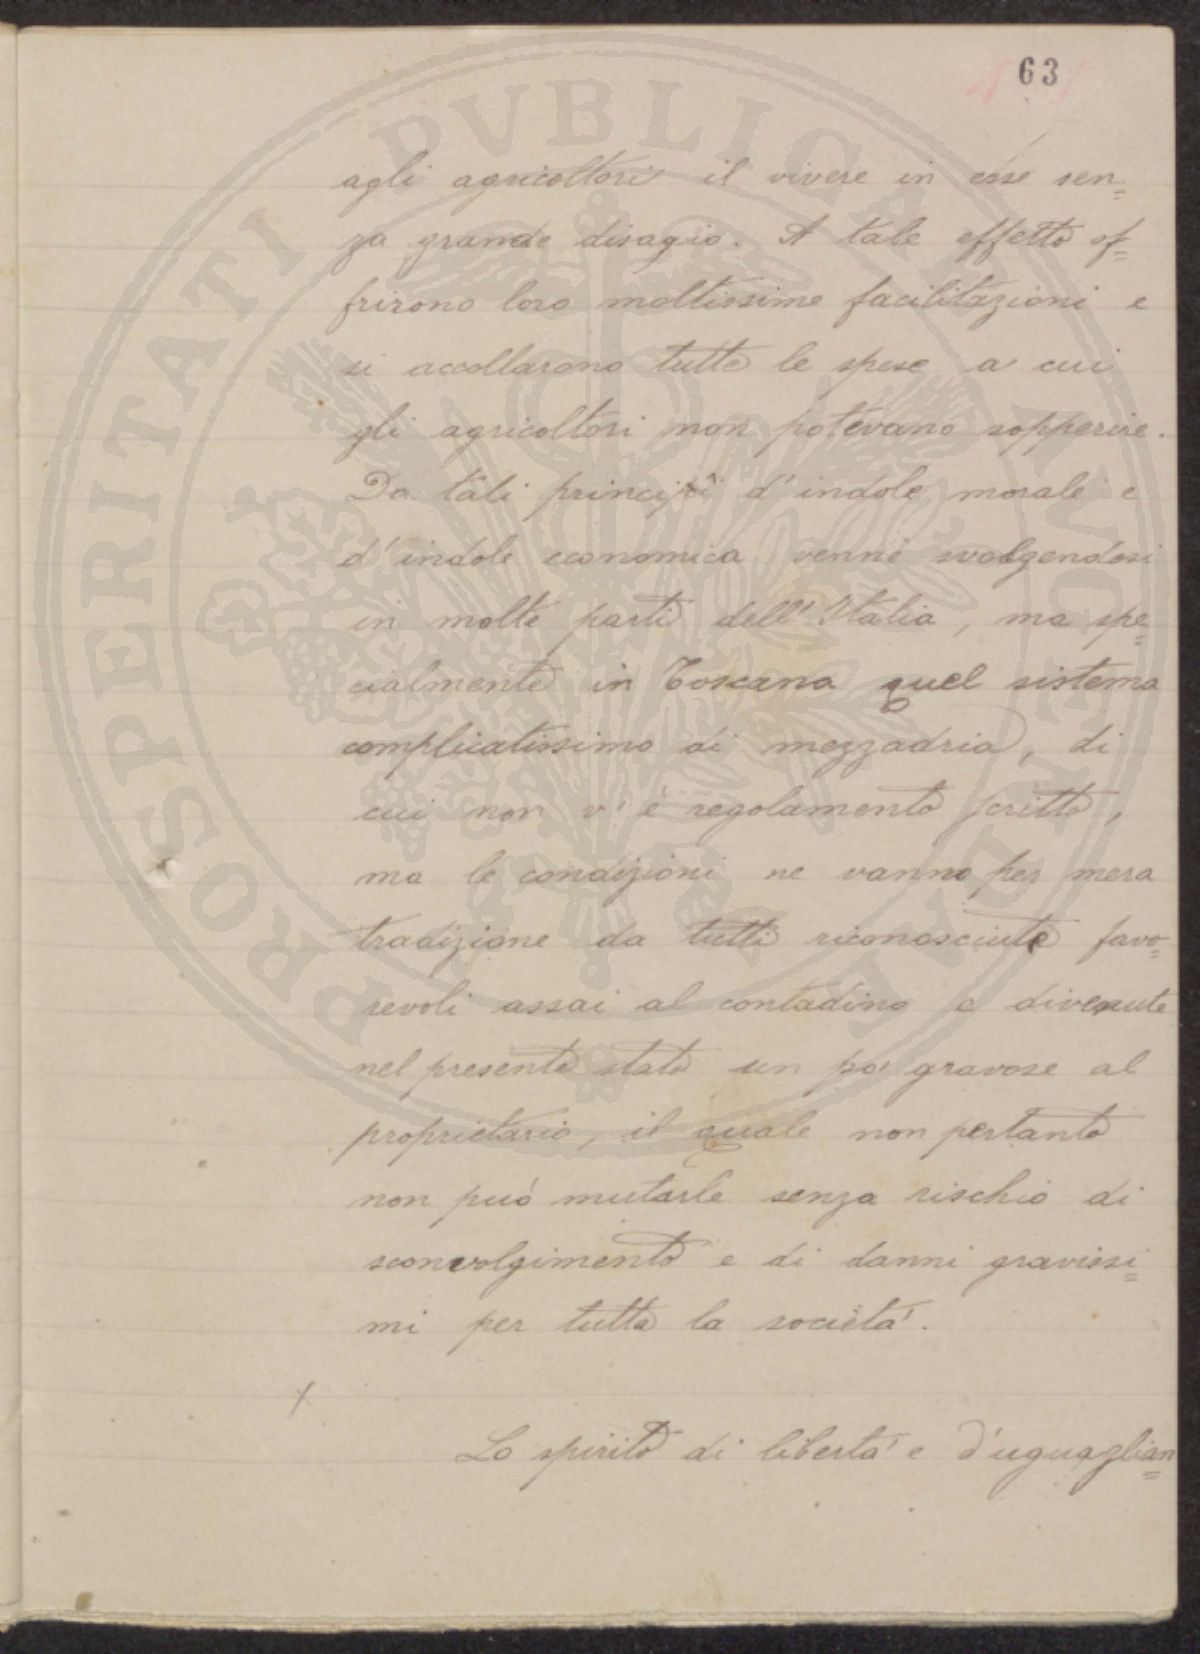 63
agli agricoltori il vivere in esse sen=
za grande disagio. A tale effetto of=
frirono loro moltissime facilitazioni e
si accollarono tutte le spese a cui
gli agricoltori non potevano sopperire.
Da tali principî d'indole morale e
d'indole economica venne svolgendosi
in molte parti dell'Italia, ma spe=
cialmente in Toscana quel sistema
complicatissimo di mezzadria, di
cui non v'è regolamento scritto,
ma le condizioni ne vanno per mera
tradizione da tutti riconosciute favo=
revoli assai al contadino e divenute
nel presente stato un po' gravose al
proprietario, il quale non pertanto
non può mutarle senza rischio di
sconvolgimento e di danni gravissi=
mi per tutta la società.
x
Lo spirito di libertà e d'uguaglian=
PROSPERITATI PVBLICAE AVGENDAE